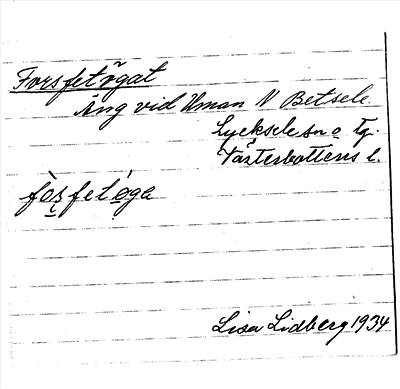 Forsfetögat
Äng vid Uman N Betsele.
Lycksele sn o tg.
Västerbottens l.
fòrfetòga
Lisa Lidberg 1934